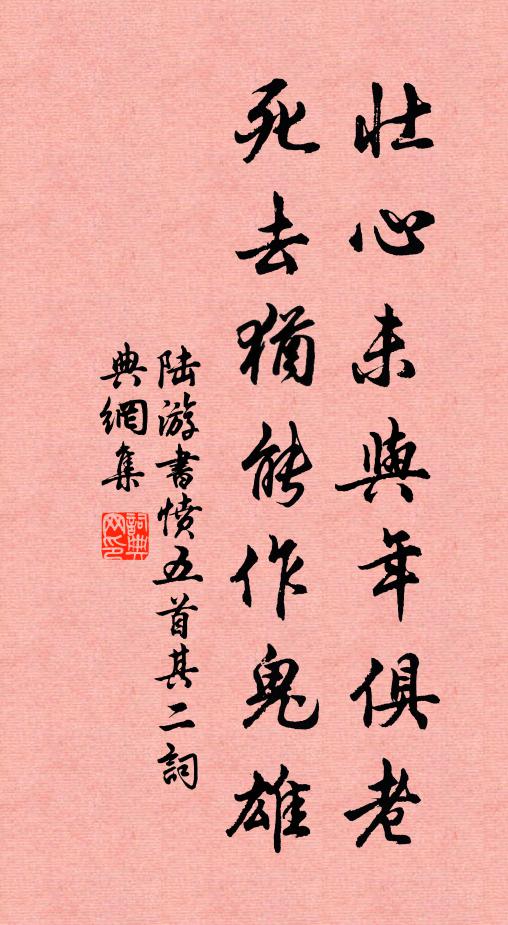 壮心未與年俱老
死去猶能作鬼雄
陆游書愤五首其二詞
典網集
詞典
网印